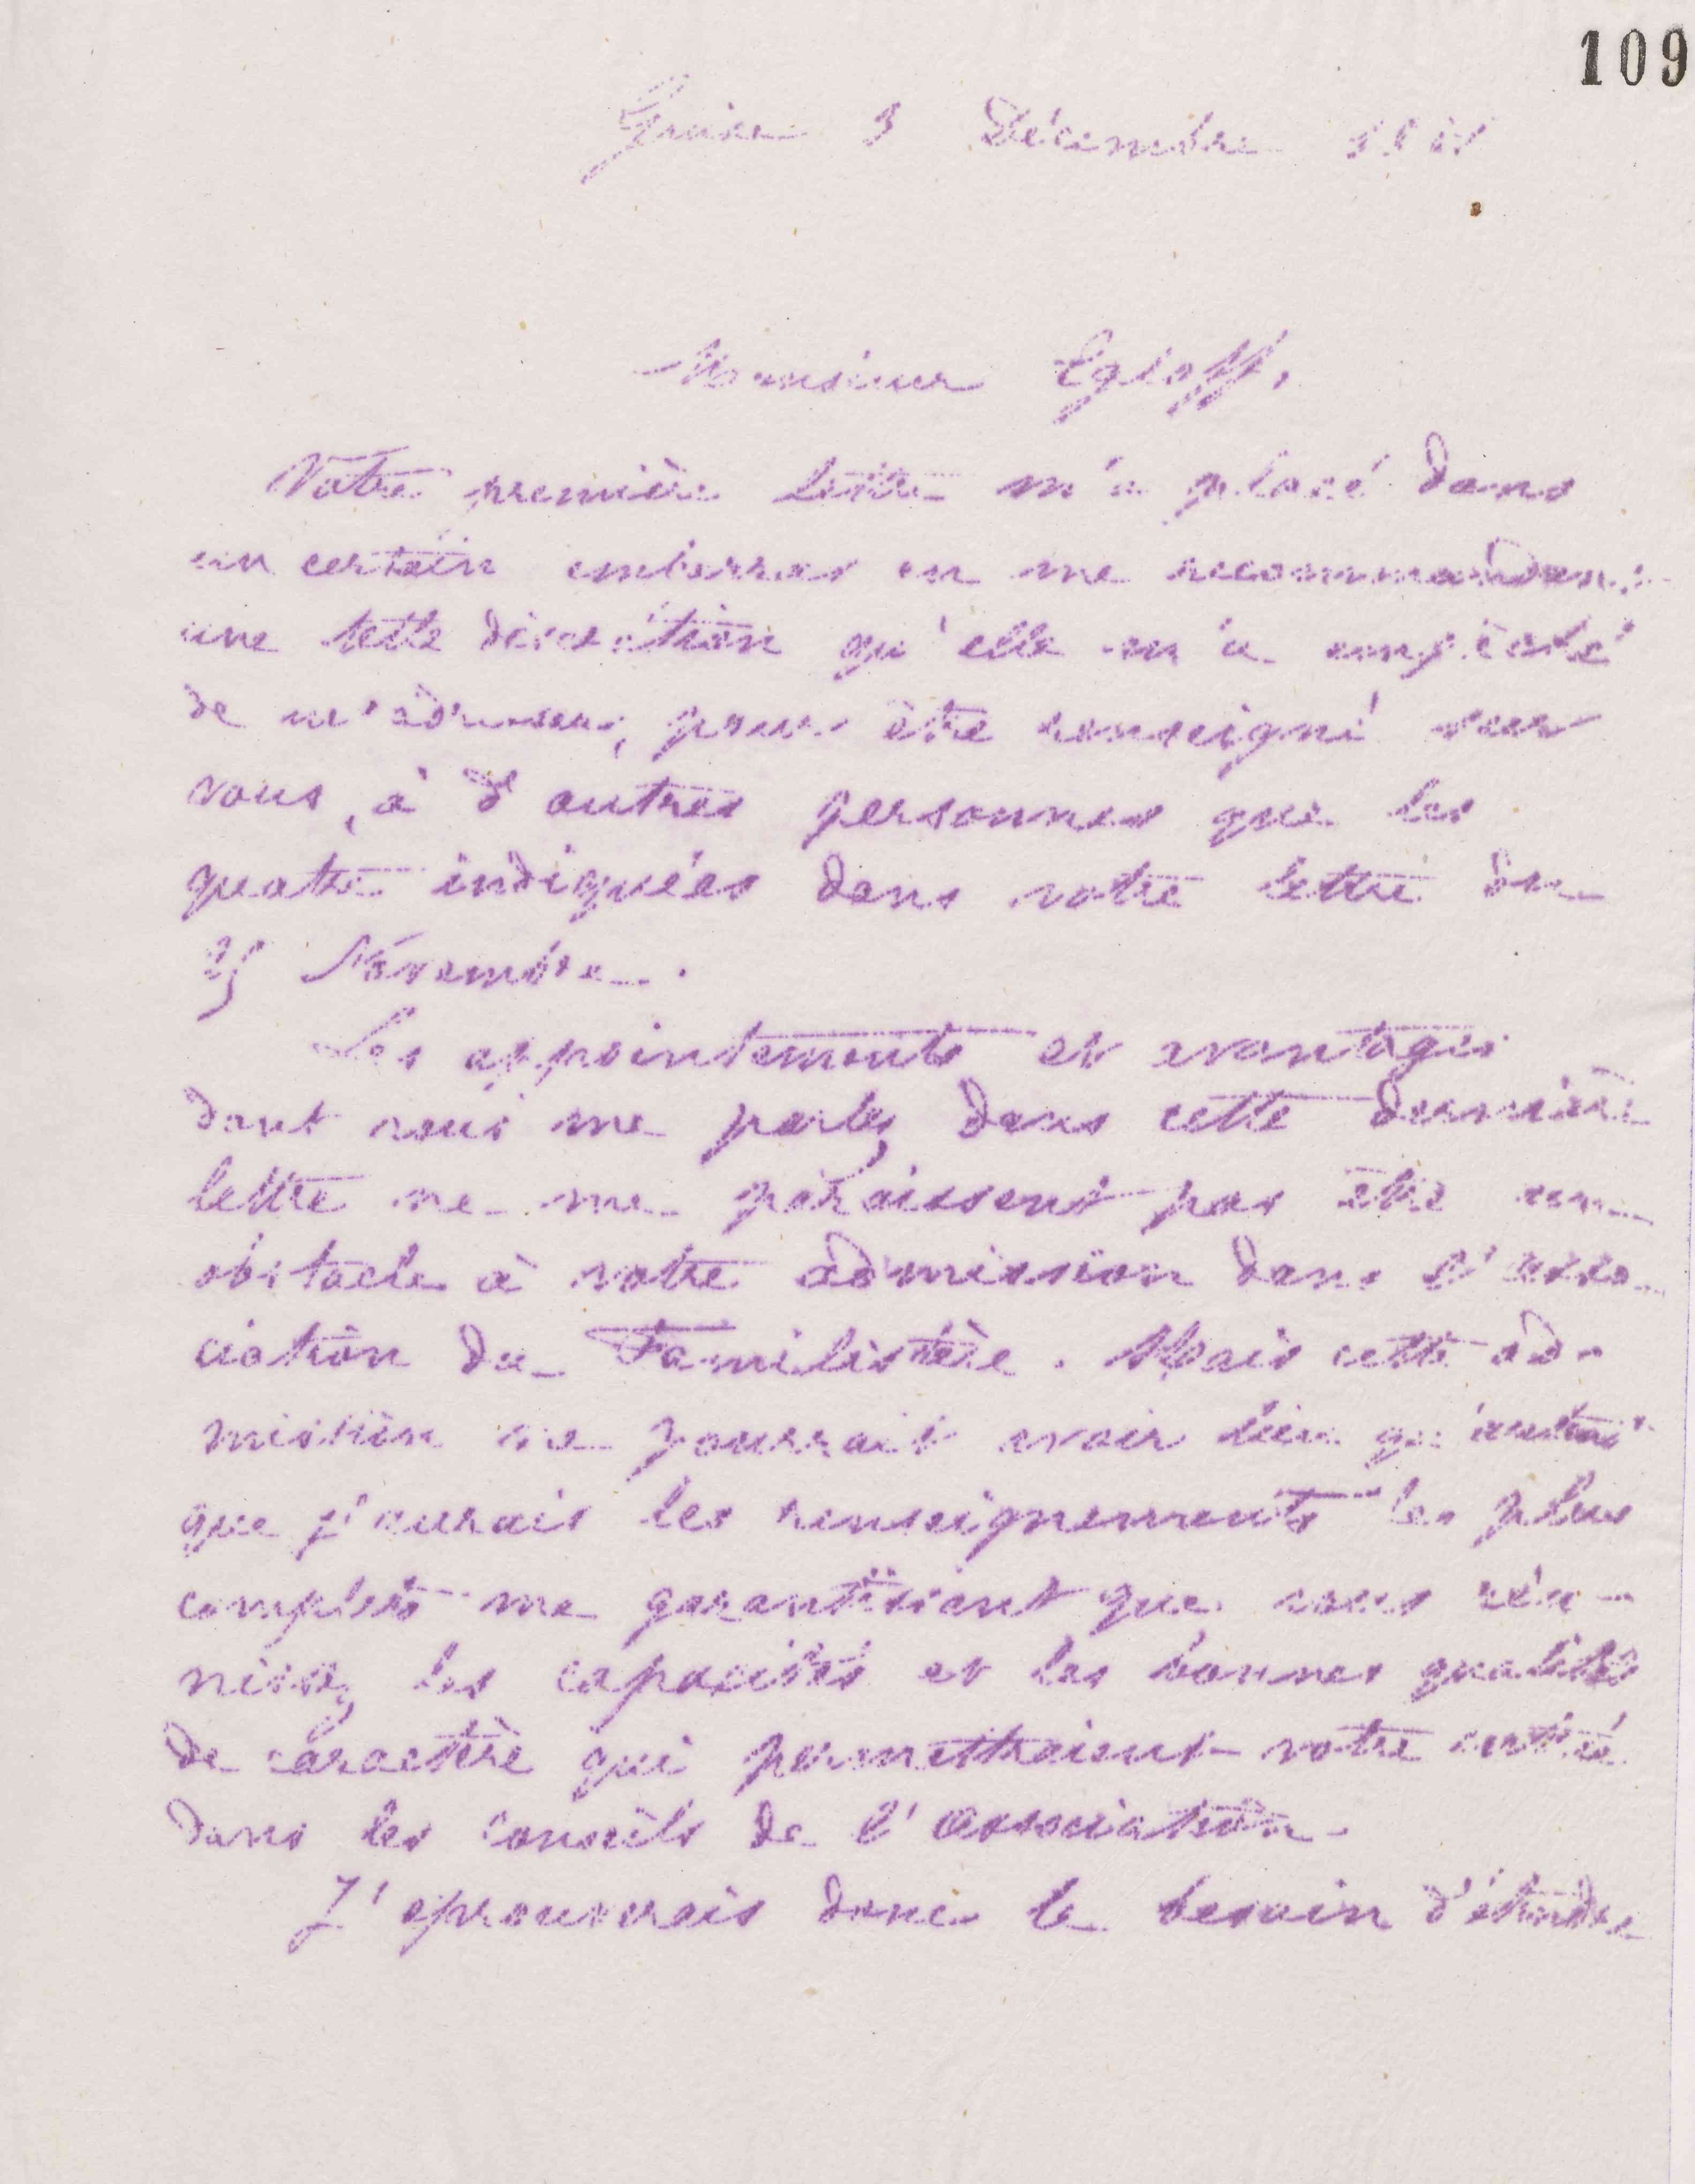 109
Guise 3 Décembre
Monsieur Egloff,
Votre première lettre m'a placé dans
un certain embarras en me recommandant
une telle discrétion qu'elle m'a empêché
de m'adresser, pour être renseigné sur
vous, à d'autres personnes que les
quatre indiquées dans votre lettre du
Novembre.
Les appointements et avantages
dont vous me parlez dans cette dernière
lettre ne me paraissent pas être un
obstacle à votre admission dans l'asso-
ciation du Familistère. Mais cette ad-
mission ne pourrait avoir lieu qu'autant
que j'aurais les renseignements les plus
complets me garantissant que vous réu-
nissez les capacités et les bonnes qualités
de caractère qui permettraient votre entrée
dans les conseils de l'association.
J'éprouverais donc le besoin d'étendre